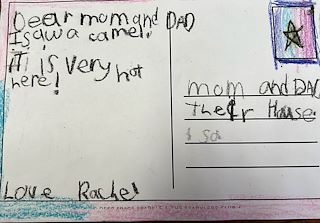 Dear mom and DAD
I saw a camel!
It is very hot
here!
Love Rachel
mom and DAD
Their House